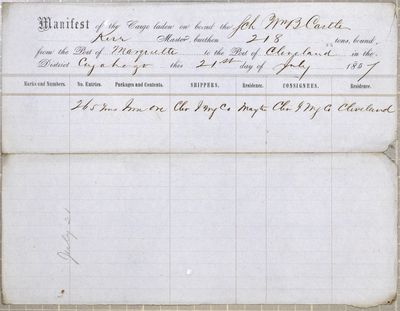 Manifest of the Cargo laden on board the Sch Wm B Castle
Kerr Master, burthen 218 tons, bound
from the Port of Marquette to the Port of Cleveland in the
District Cuyahoga this 21st day of July 1857
Marks and Numbers. No. Entries. Packages and Contents. SHIPPERS. Residence. CONSIGNEES. Residence.
265 Tons Iron Ore Clev I Mg Co Maqte Clev I Mg Co Cleveland
July 21